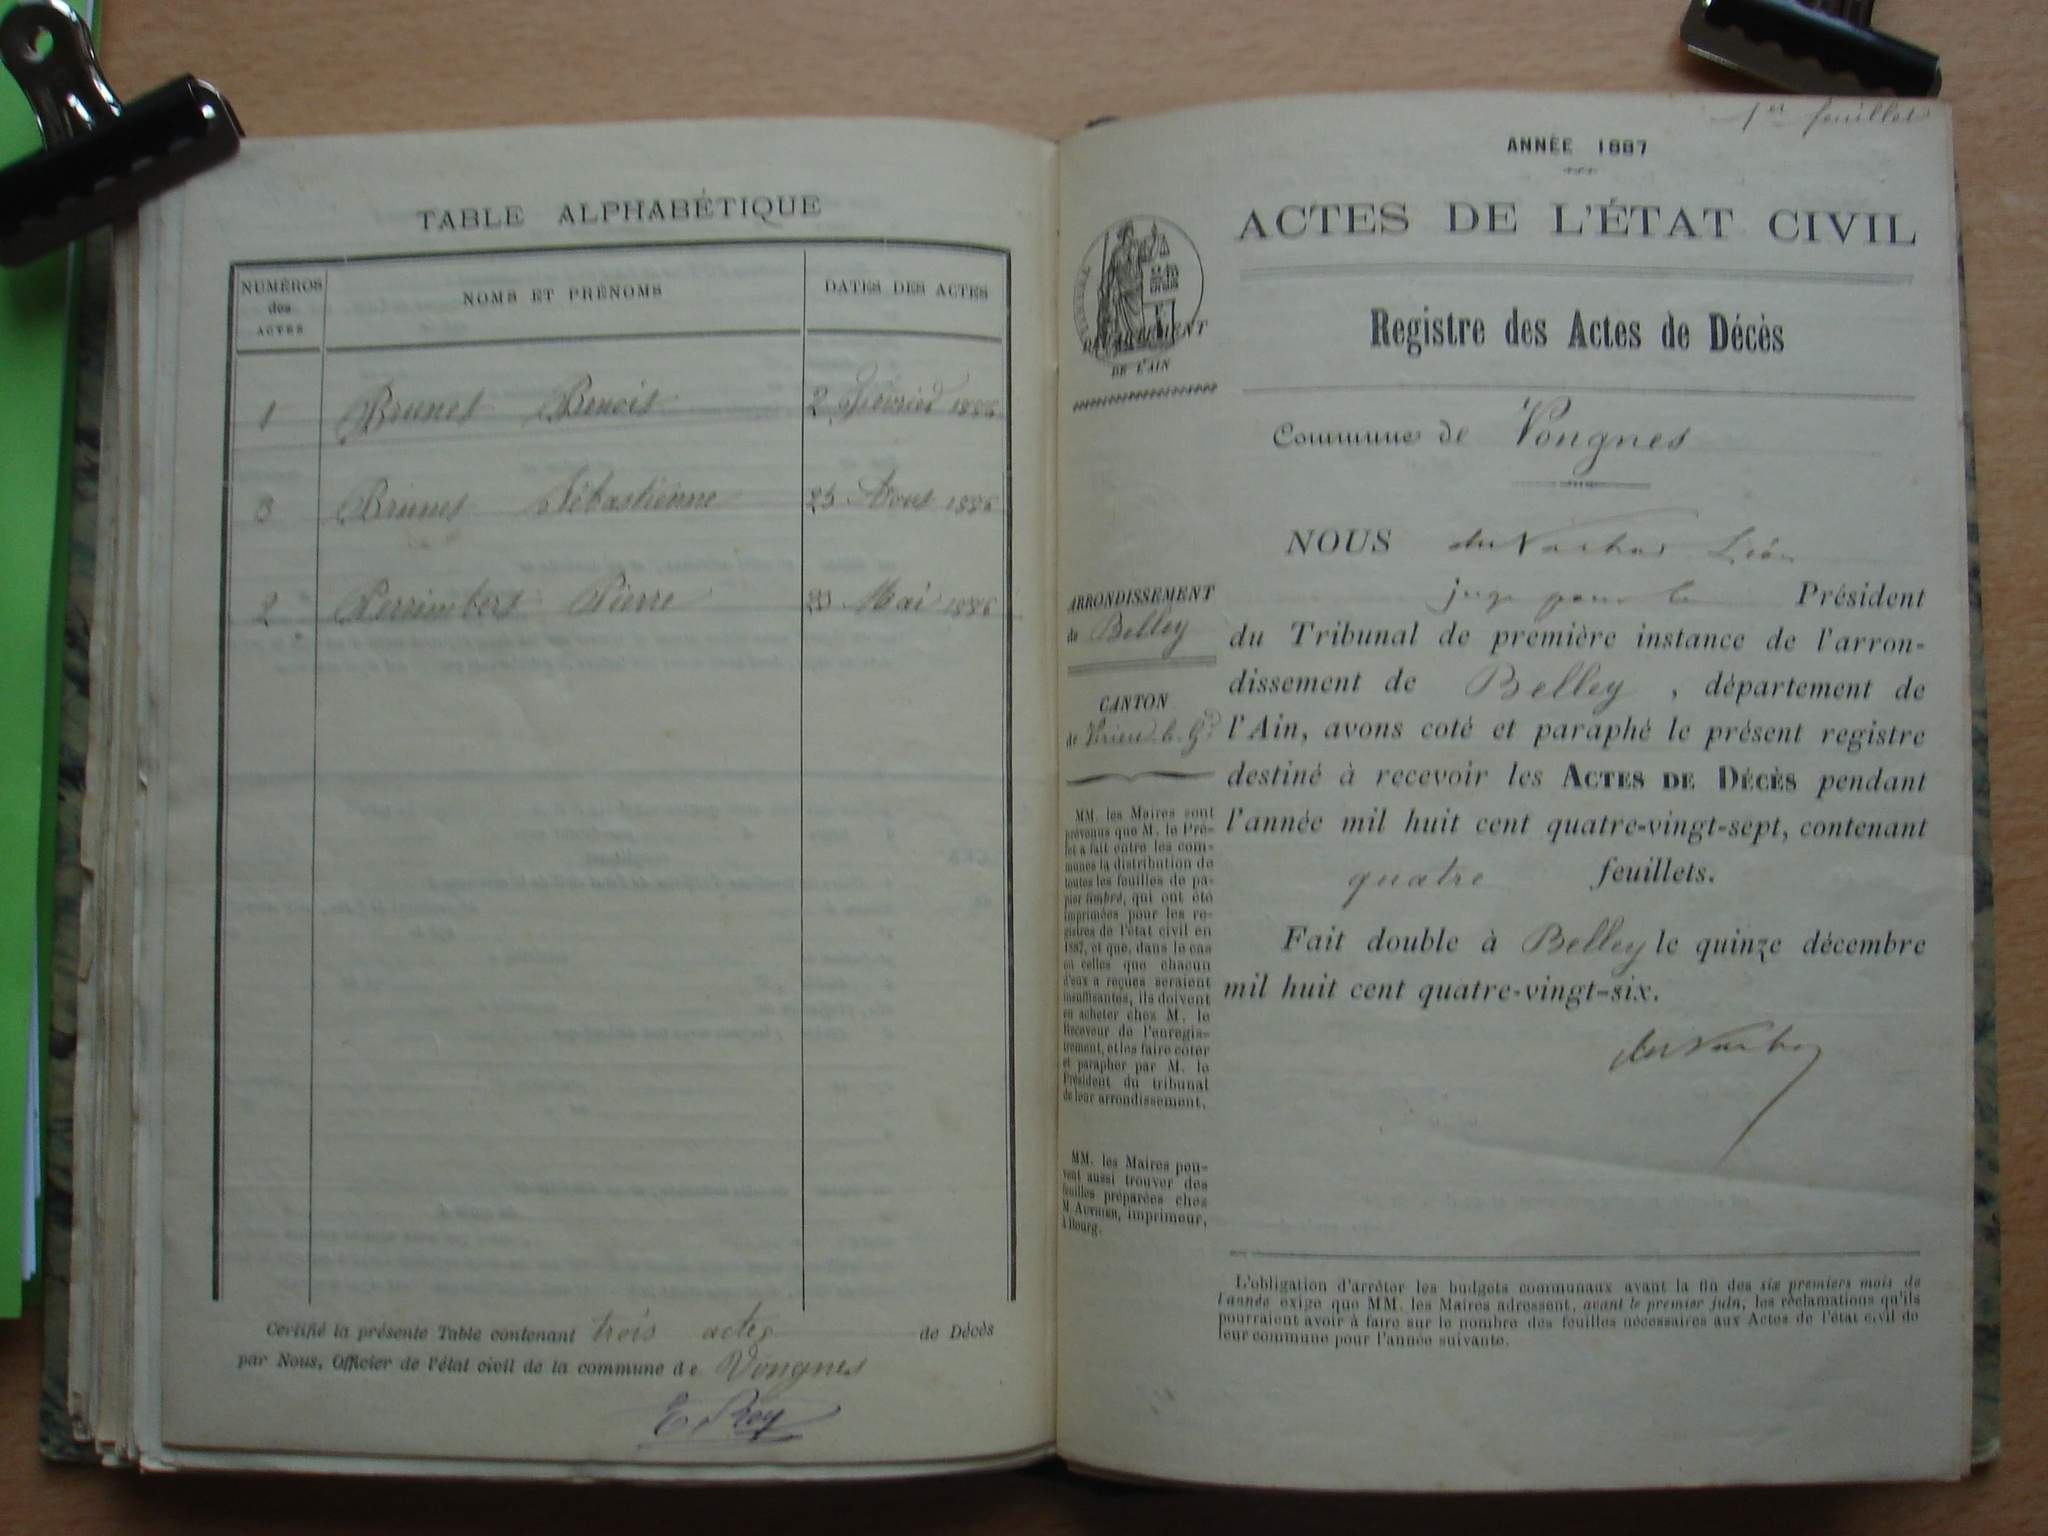 TABLE ALPHABÉTIQUE
NUMÉROS
des
ACTES
NOMS ET PRÉNOMS
DATES DES ACTES
1 Brunet Benoit 2 Février 1886
3 Brunet Sébastienne 25 Aout 1886
2 Perrimbert Pierre Mai 1886
Certifié la présente Table contenant trois actes de Décès
par Nous, Officier de l'état civil de la commune de Vongnes
E. Rey
1er feuillet
ANNÉE 1887
ACTES DE L'ÉTAT CIVIL
DÉPARTEMENT
DE L'AIN
Registre des Actes de Décès
Commune de Vongnes
ARRONDISSEMENT
de Belley
CANTON
de Virieu-le-Gd
MM. les Maires sont
prévenus que M. le Pré-
fet a fait entre les com-
munes la distribution de
toutes les feuilles de pa-
pier timbré, qui ont été
imprimées pour les re-
gistres de l'état civil en
1887, et que, dans le cas
où celles que chacun
d'eux a reçues seraient
insuffisantes, ils doivent
en acheter chez M. le
Receveur de l'enregis-
trement, et les faire coter
et parapher par M. le
Président du tribunal
de leur arrondissement.
MM. les Maires peu-
vent aussi trouver des
feuilles préparées chez
M. AUTHIER, imprimeur,
à Bourg.
NOUS Léon
juge pour le Président
du Tribunal de première instance de l'arron-
dissement de Belley, département de
l'Ain, avons coté et paraphé le présent registre
destiné à recevoir les ACTES DE DÉCÈS pendant
l'année mil huit cent quatre-vingt-sept, contenant
quatre feuillets.
Fait double à Belley le quinze décembre
mil huit cent quatre-vingt-six.
L'obligation d'arrêter les budgets communaux avant la fin des six premiers mois de
l'année exige que MM. les Maires adressent, avant le premier juin, les réclamations qu'ils
pourraient avoir à faire sur le nombre des feuilles nécessaires aux Actes de l'état civil de
leur commune pour l'année suivante.